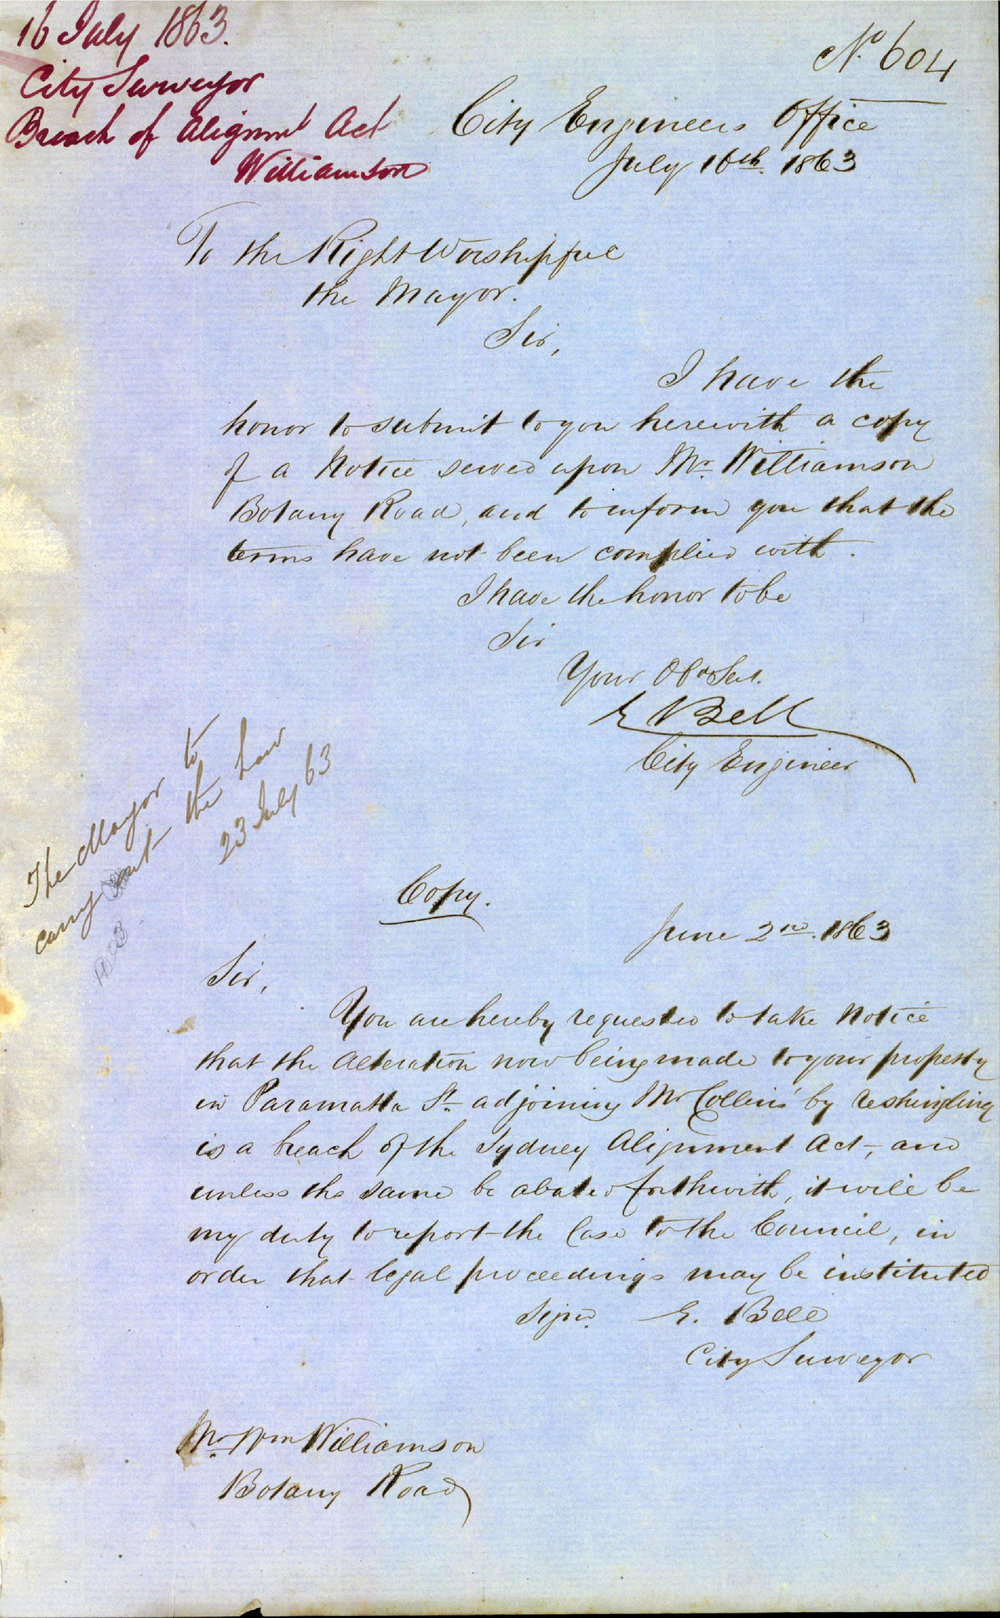 16 July 1863.
City Surveyor
Breach of Alignmt Act
Williamson
No. 604
City Engineers Office
July 16th. 1863
To the Right Worshipful
the Mayor.
Sir,
I have the
honor to submit to you herewith a copy
of a Notice served upon Mr. Williamson
Botany Road, and to inform you that the
terms have not been complied with.
I have the honor to be
Sir
Your Obt Sevt.
E Bell
City Engineer
The Mayor to
carry out the law
23 July 63
Copy.
June 2nd. 1863
Sir,
You are hereby requested to take Notice
that the Alteration now being made to your property
in Paramatta St. adjoining Mr Collins' by reshingling
is a breach of the Sydney Alignment Act, and
unless the same be abated forthwith, it will be
my duty to report the Case to the Council, in
order that legal proceedings may be instituted
Signd. E. Bell
City Surveyor
Mr. Wm Williamson
Botany Road